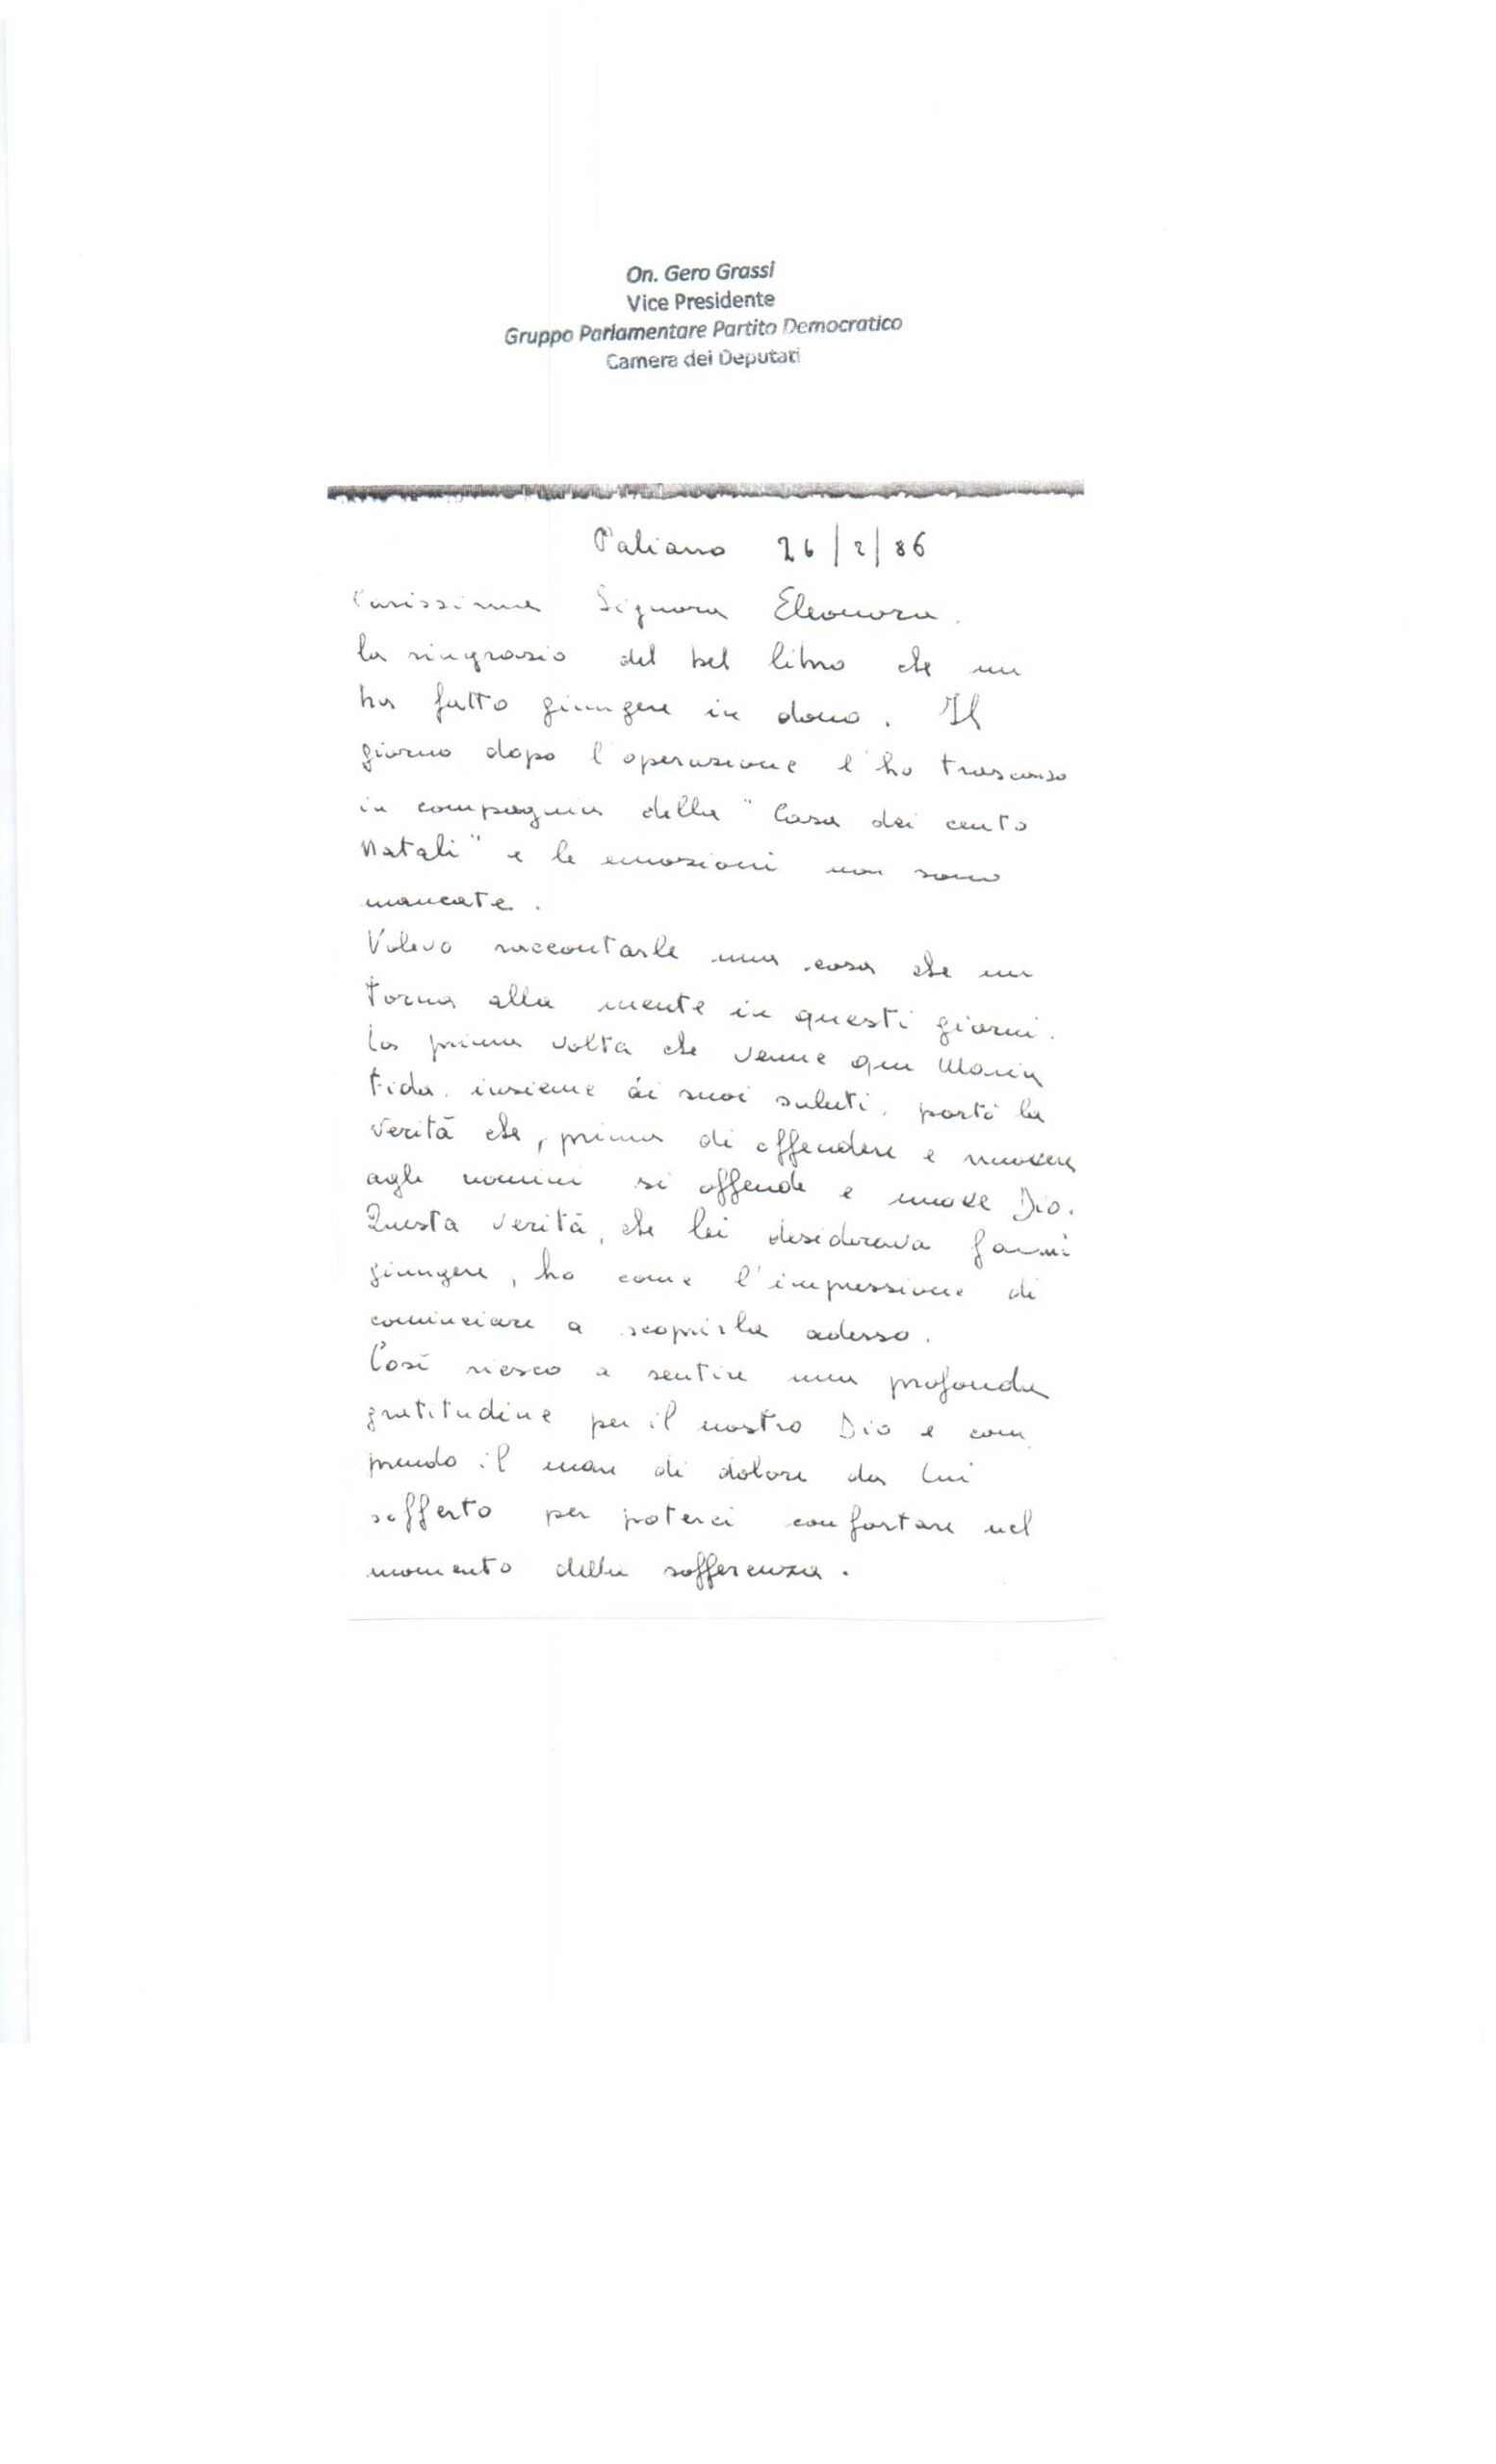 On. Gero Grassi
Vice Presidente
Gruppo Parlamentare Partito Democratico
Camera dei Deputati
Paliano 26/2/86
Carissima Signora Eleonora.
la ringrazio del bel libro che mi
ha fatto giungere in dono. Il
giorno dopo l'operazione l'ho trascorso
in compagnia della "Casa dei cento
Natali" e le emozioni non sono
mancate.
Volevo raccontarle una cosa che mi
torna alla mente in questi giorni.
La prima volta che venne qui Maria
Fida, insieme ai suoi saluti, portò la
verità che, prima di offendere e nuocere
agli uomini si offende e nuoce Dio.
Questa verità, che lei desiderava farmi
giungere, ho come l'impressione di
cominciare a scoprirla adesso.
Così riesco a sentire una profonda
gratitudine per il nostro Dio e com
prendo il mare di dolore da Lui
sofferto per poterci confortare nel
momento della sofferenza.